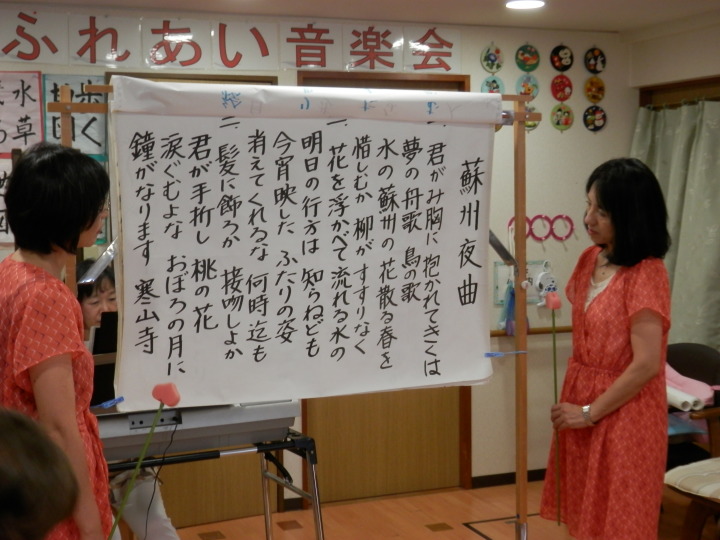 ふれあい音楽会
蘇州夜曲
一、君がみ胸に 抱かれてきくは
夢の舟歌 鳥の歌
水の蘇州の 花散る春を
惜しむか 柳が すすりなく
二、花を浮かべて 流れる水の
明日の行方は 知らねども
今宵映した ふたりの姿
消えてくれるな 何時迄も
三、髪に飾ろか 接吻しよか
君が手折し 桃の花
涙ぐむよな おぼろの月に
鐘がなります 寒山寺
歩く
水草